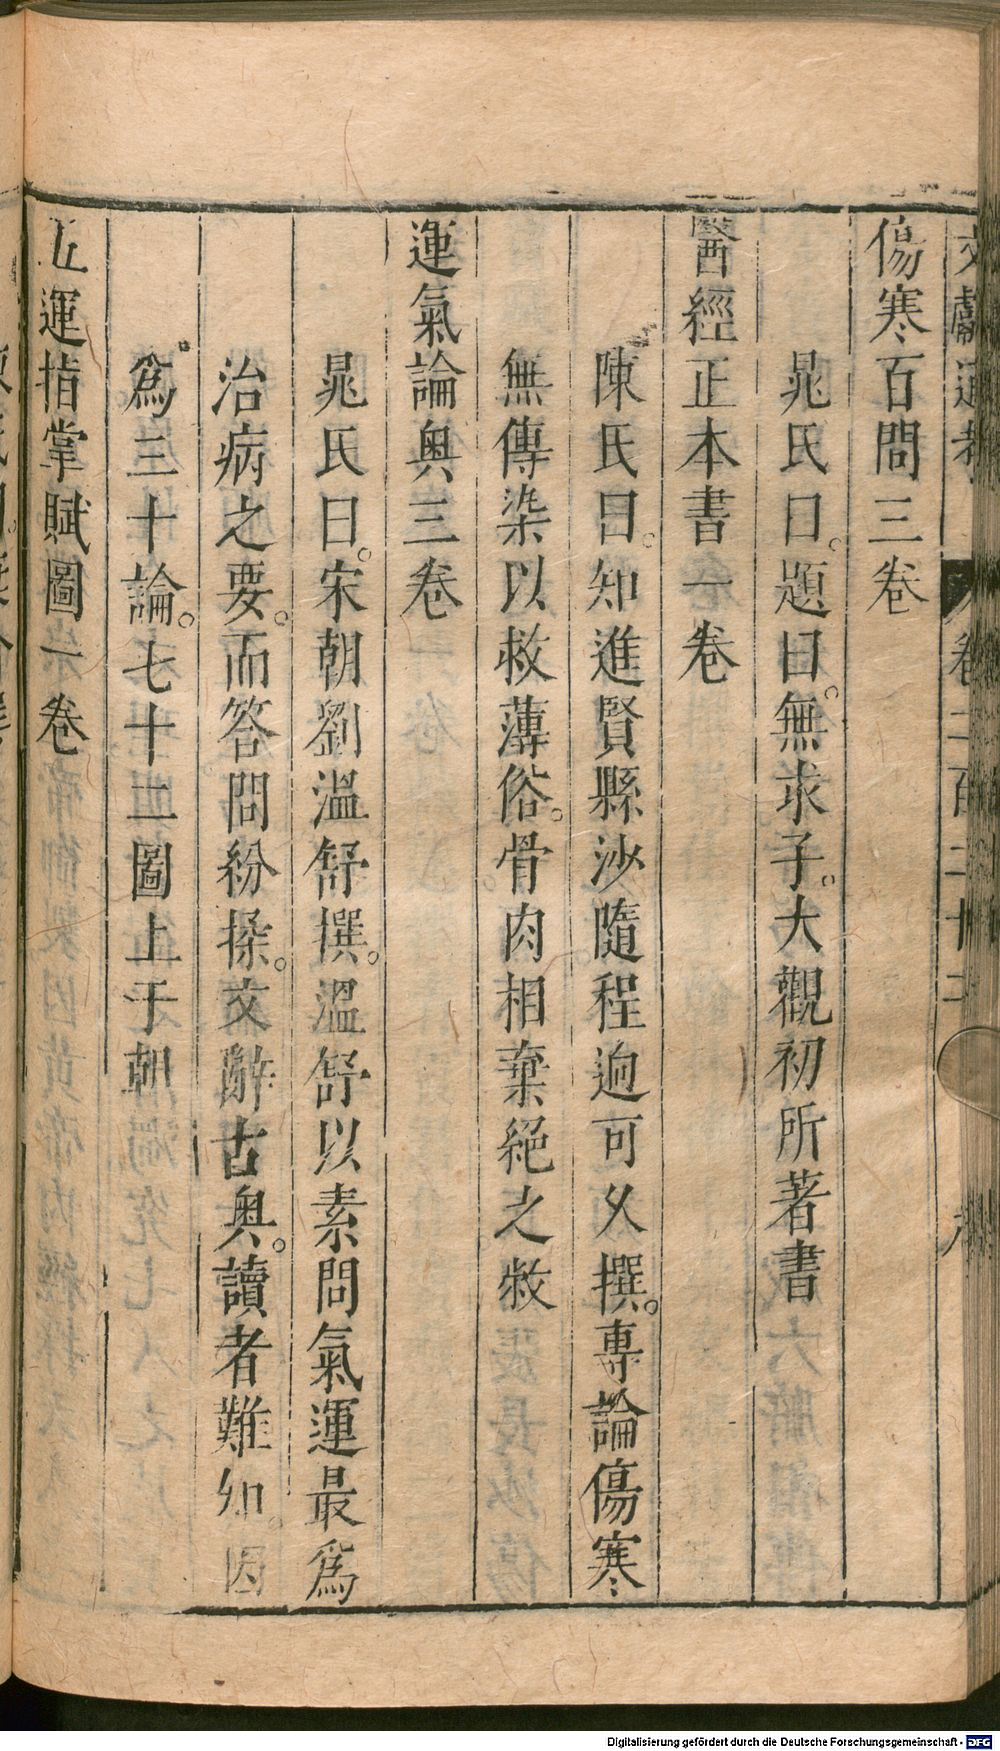 文獻通考 卷二百二十二
傷寒百問三卷
晁氏曰。題曰。無求子。大觀初所著書
醫經正本書一卷
陳氏曰。知進賢縣沙隨程迥可久撰。專論傷寒
無傳染以救薄俗。骨肉相棄絕之敝
運氣論奥三卷
晁氏曰。宋朝劉溫舒撰。溫舒以素問氣運最爲
治病之要。而答問紛揉。文辭古奥。讀者難知。因
爲三十論。七十二圖上于朝
五運指掌賦圖一卷
Digitalisierung gefördert durch die Deutsche Forschungsgemeinschaft - DFG